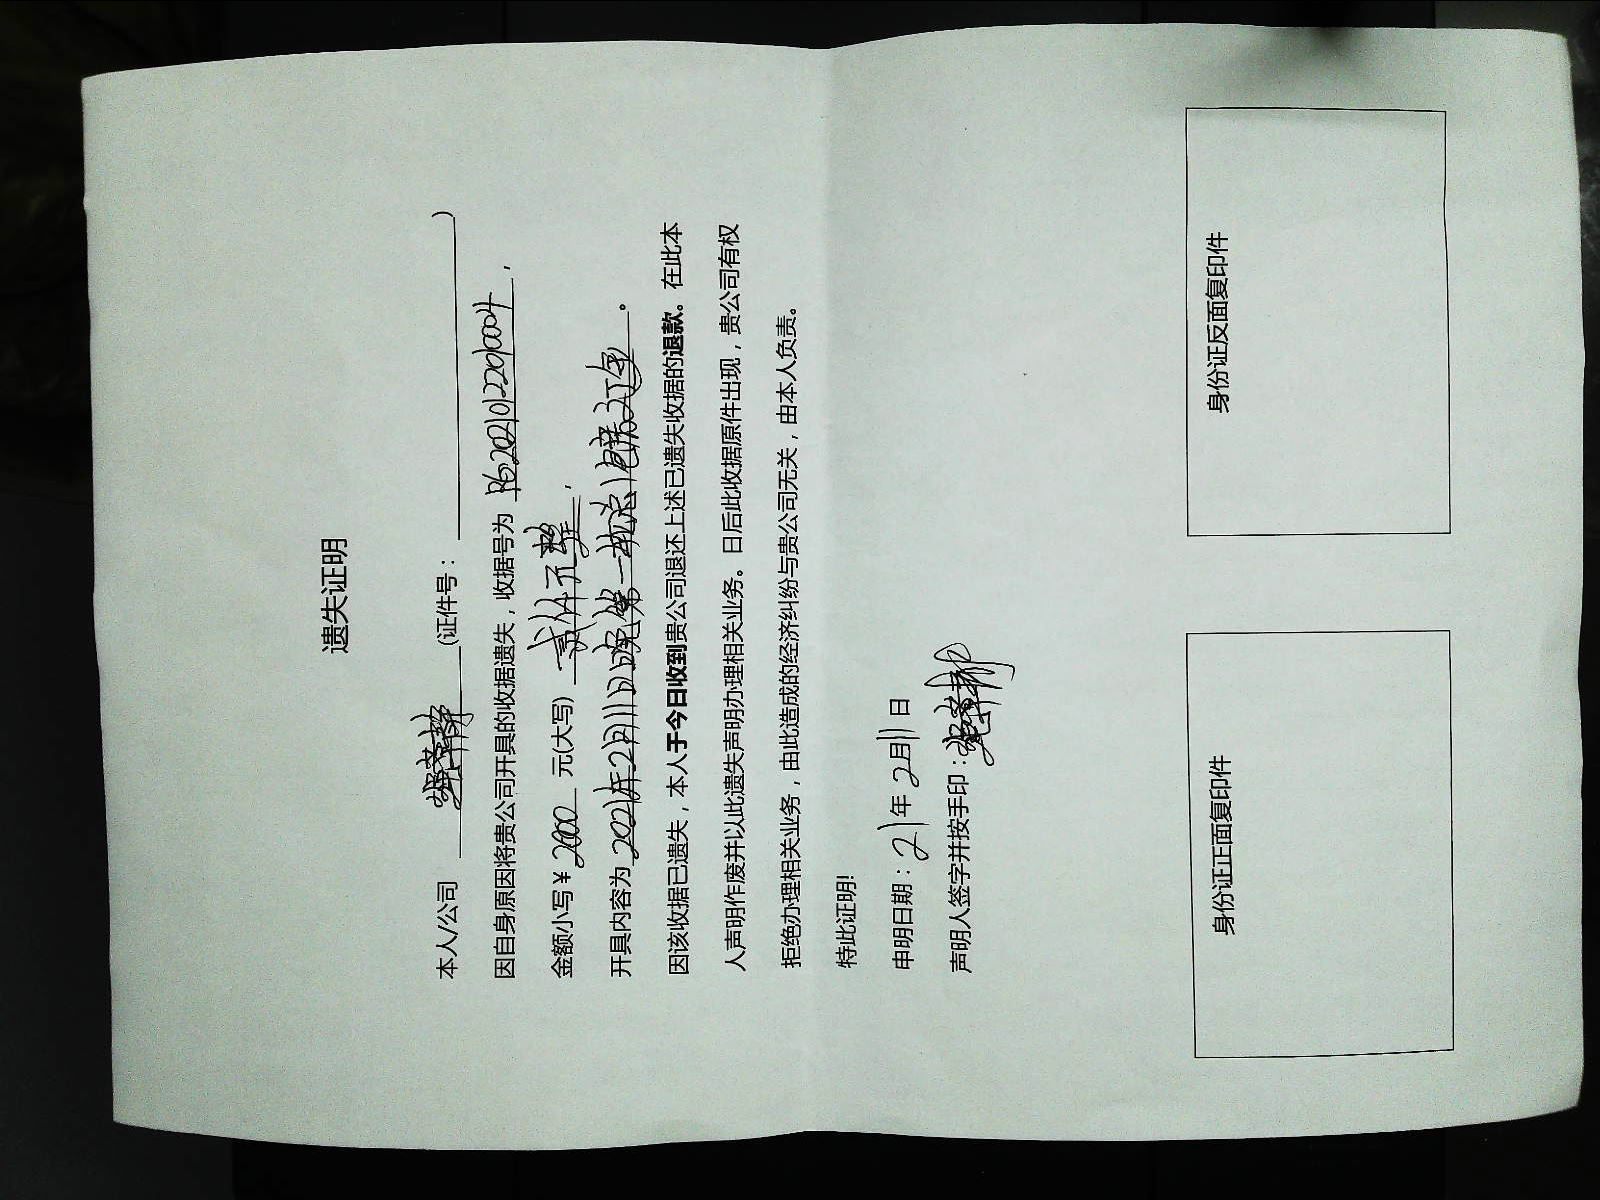 遗失证明
本人/公司 (证件号： )
因自身原因将贵公司开具的收据遗失，收据号为 PG20210122010004，
金额小写￥2000 元(大写) 贰仟元整，
开具内容为 2021年2月11日晚第一
因该收据已遗失，本人于今日收到贵公司退还上述已遗失收据的退款。在此本
人声明作废并以此遗失声明办理相关业务。日后此收据原件出现，贵公司有权
拒绝办理相关业务，由此造成的经济纠纷与贵公司无关，由本人负责。
特此证明!
申明日期：21年2月11日
声明人签字并按手印：
身份证正面复印件
身份证反面复印件